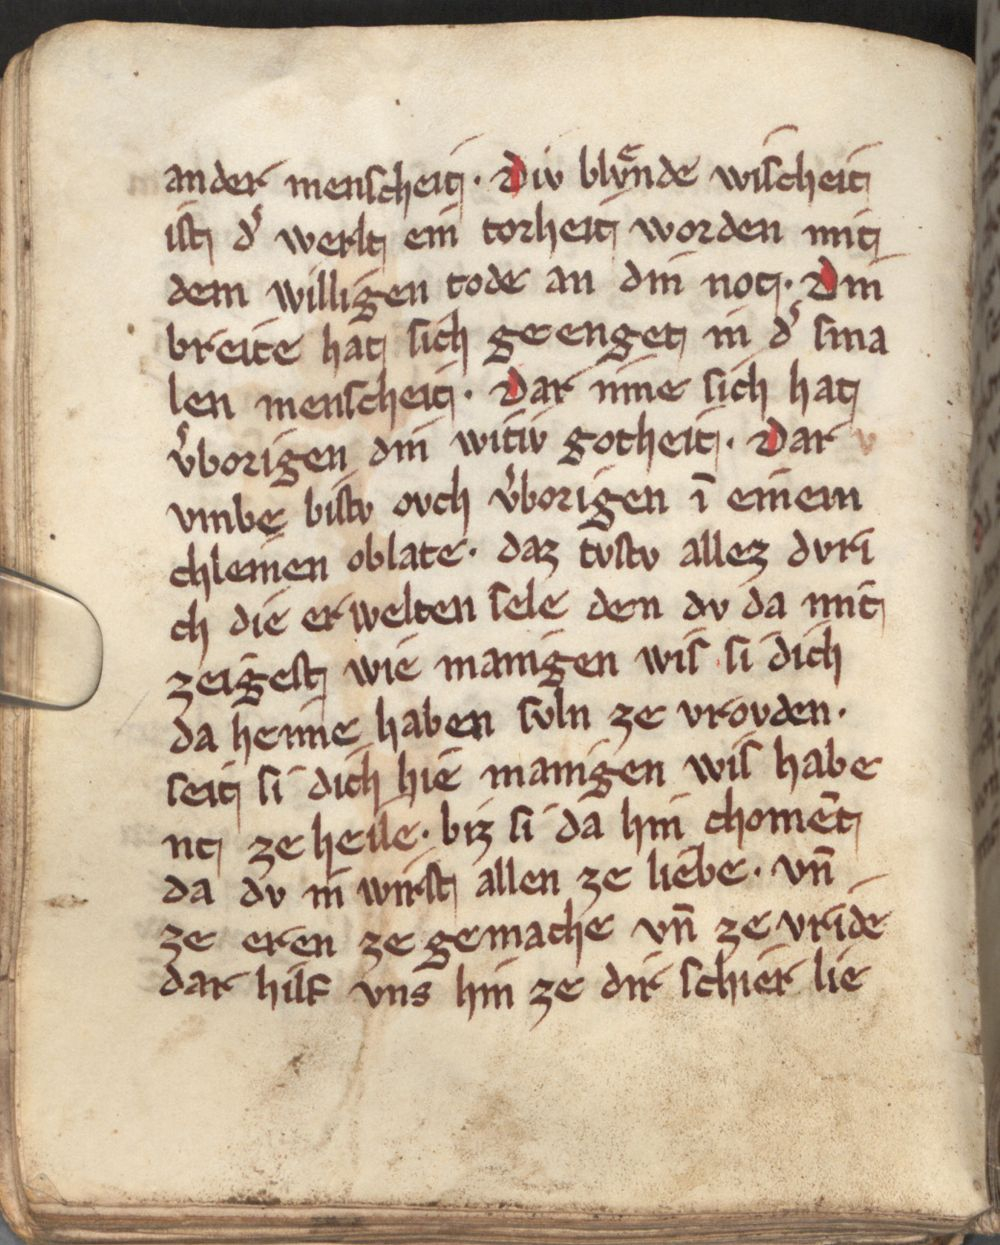 ander menscheit · Div blvͤnde wischeit
ist dˢ werlt ein torheit worden mit
dem willigen tode an din not · Din
breite hat sich geenget in dˢ sma
len menscheit · Dar inne sich hat
vˢborigen din witiv gotheit · Dar
vmbe bistv ovch vˢborigen ī einem
chleinen oblate · daz tvstv allez dvri
ch die erwelten sele den dv da mit
zeigest wie manigen wis si dich
da henne haben svln ze vrovden ·
seit si dich hie manigen wis habe
nt ze heile · biz si da hin chomēt
da dv in wirst allen ze liebe · vn̄
ze eren ze gemache vn̄ ze vride
dar hilf vns hin ze dir schier lie